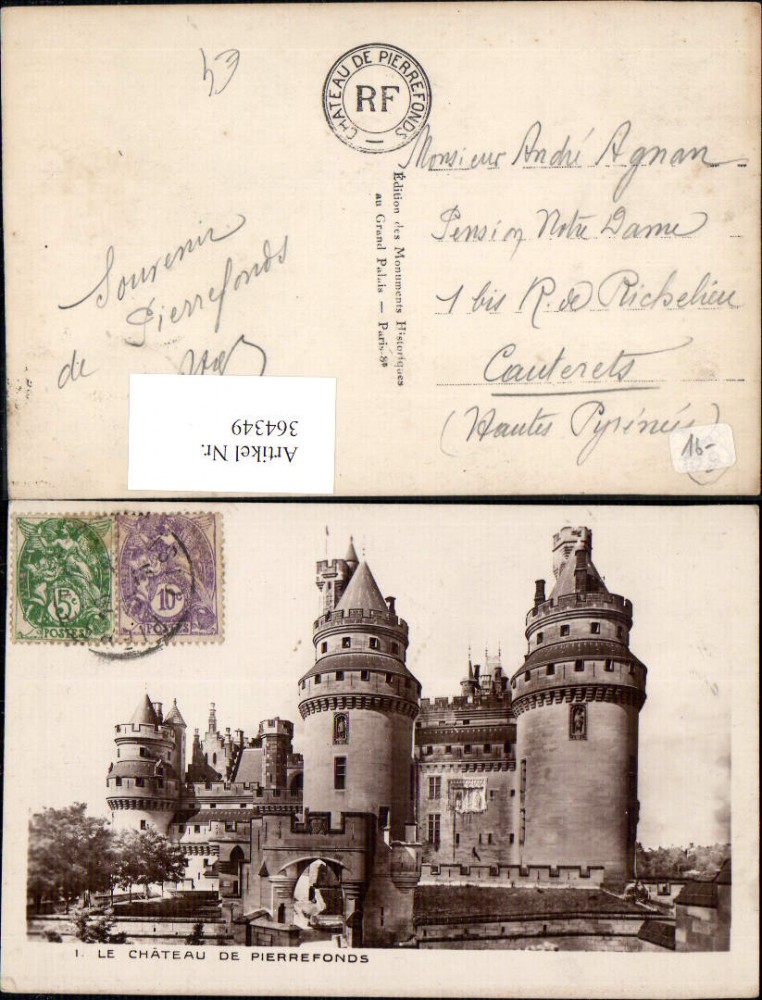 43
CHATEAU DE PIERREFONDS
RF
Monsieur André Agnan
Pension Notre Dame
1 bis R. de Richelieu
Cauterets
(Hautes Pyrénées)
Édition des Monuments Historiques
au Grand Palais — Paris-8e
Souvenir
de Pierrefonds
Artikel Nr.
364349
16-
5c
POSTES
10c
POSTES
1. LE CHÂTEAU DE PIERREFONDS